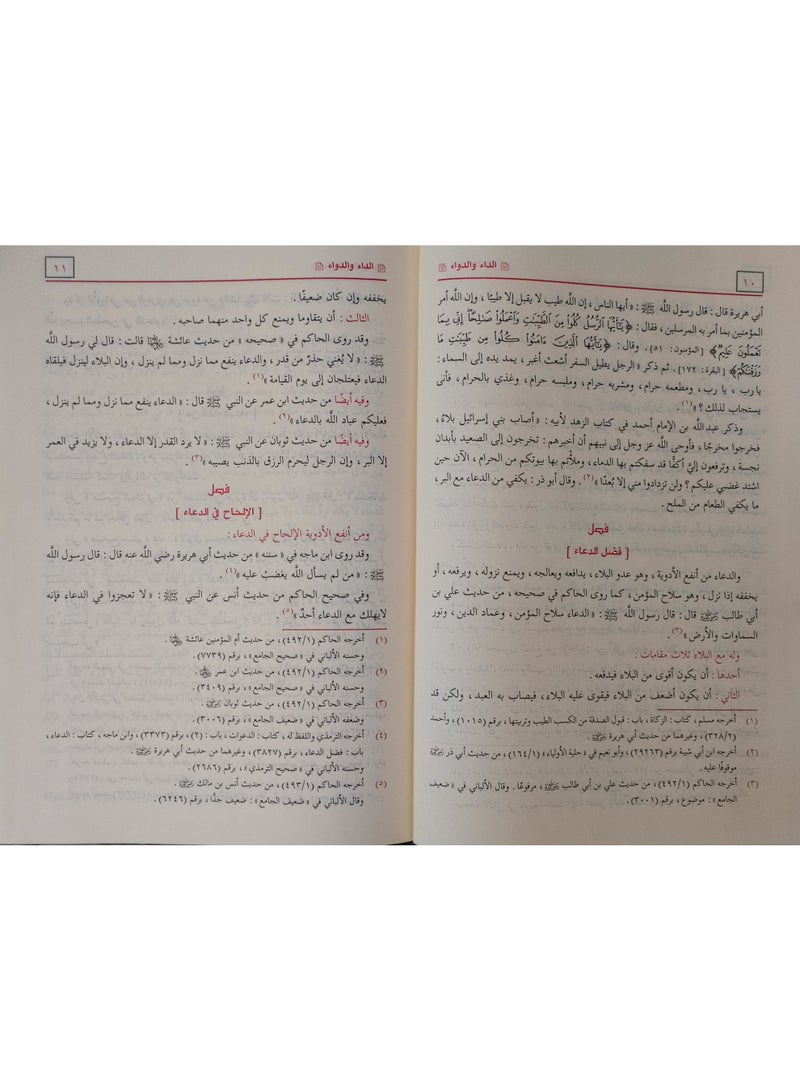 ١٠
الداء والدواء
أبي هريرة قال : قال رسول اللَّه ﷺ : « أيها الناس ، إن اللَّه طيب لا يقبل إلا طيبًا ، وإن اللَّه أمر
المؤمنين بما أمر به المرسلين ، فقال : ﴿ يَٰٓأَيُّهَا ٱلرُّسُلُ كُلُوا۟ مِنَ ٱلطَّيِّبَٰتِ وَٱعْمَلُوا۟ صَٰلِحًا إِنِّى بِمَا
تَعْمَلُونَ عَلِيمٌ ﴾ [المؤمنون : ٥١] . وقال : ﴿ يَٰٓأَيُّهَا ٱلَّذِينَ ءَامَنُوا۟ كُلُوا۟ مِن طَيِّبَٰتِ مَا
رَزَقْنَٰكُمْ ﴾ [البقرة : ١٧٢] . ثم ذكر « الرجل يطيل السفر أشعث أغبر ، يمد يده إلى السماء :
يا رب ، يا رب ، ومطعمه حرام ، ومشربه حرام ، وملبسه حرام ، وغذي بالحرام ، فأنى
يستجاب لذلك ؟ » (١) .
وذكر عبد اللَّه بن الإمام أحمد في كتاب الزهد لأبيه : « أصاب بني إسرائيل بلاءٌ ،
فخرجوا مخرجًا ، فأوحى اللَّه عز وجل إلى نبيهم أن أخبرهم : تخرجون إلى الصعيد بأبدان
نجسة ، وترفعون إليَّ أكفًّا قد سفكتم بها الدماء ، وملأتم بها بيوتكم من الحرام ، الآن حين
اشتد غضبي عليكم ؟ ولن تزدادوا مني إلا بُعدًا » (٢) . وقال أبو ذر : يكفي من الدعاء مع البر ،
ما يكفي الطعام من الملح .
فصل
[ فضل الدعاء ]
والدعاء من أنفع الأدوية ، وهو عدو البلاء ، يدافعه ويعالجه ، ويمنع نزوله ، ويرفعه ، أو
يخففه إذا نزل ، وهو سلاح المؤمن ، كما روى الحاكم في صحيحه ، من حديث علي بن
أبي طالب رضي الله عنه قال : قال رسول اللَّه ﷺ : « الدعاء سلاح المؤمن ، وعماد الدين ، ونور
السماوات والأرض » (٣) .
وله مع البلاء ثلاث مقامات :
أحدها : أن يكون أقوى من البلاء فيدفعه .
الثاني : أن يكون أضعف من البلاء فيقوى عليه البلاء ، فيصاب به العبد ، ولكن قد
(١) أخرجه مسلم ، كتاب : الزكاة ، باب : قبول الصدقة من الكسب الطيب وتربيتها ، برقم (١٠١٥) ، وأحمد
(٣٢٨/٢) ، وغيرهما من حديث أبي هريرة رضي الله عنه .
(٢) أخرجه ابن أبي شيبة برقم (٢٩٢٦٣) ، وأبو نعيم في « حلية الأولياء » (١٦٤/١) ، من حديث أبي ذر رضي الله عنه
موقوفًا عليه .
(٣) أخرجه الحاكم (٤٩٢/١) ، من حديث علي بن أبي طالب رضي الله عنه ، مرفوعًا . وقال الألباني في « ضعيف
الجامع » : موضوع ، برقم (٣٠٠١) .
الداء والدواء
١١
يخففه وإن كان ضعيفًا .
الثالث : أن يتقاوما ويمنع كل واحد منهما صاحبه .
وقد روى الحاكم في « صحيحه » من حديث عائشة رضي الله عنها قالت : قال لي رسول اللَّه
ﷺ : « لا يُغني حذرٌ من قدر ، والدعاء ينفع مما نزل ومما لم ينزل ، وإن البلاء لينزل فيلقاه
الدعاء فيعتلجان إلى يوم القيامة » (١) .
وفيه أيضًا من حديث ابن عمر عن النبي ﷺ قال : « الدعاء ينفع مما نزل ومما لم ينزل ،
فعليكم عباد اللَّه بالدعاء » (٢) .
وفيه أيضًا من حديث ثوبان عن النبي ﷺ : « لا يرد القدر إلا الدعاء ، ولا يزيد في العمر
إلا البر ، وإن الرجل ليحرم الرزق بالذنب يصيبه » (٣) .
فصل
[ الإلحاح في الدعاء ]
ومن أنفع الأدوية الإلحاح في الدعاء :
وقد روى ابن ماجه في « سننه » من حديث أبي هريرة رضي اللَّه عنه قال : قال رسول اللَّه
ﷺ : « من لم يسأل اللَّه يغضب عليه » (٤) .
وفي صحيح الحاكم من حديث أنس عن النبي ﷺ : « لا تعجزوا في الدعاء فإنه
لايهلك مع الدعاء أحدٌ » (٥) .
(١) أخرجه الحاكم (٤٩٢/١) ، من حديث أم المؤمنين عائشة رضي الله عنها .
وحسنه الألباني في « صحيح الجامع » ، برقم (٧٧٣٩) .
(٢) أخرجه الحاكم (٤٩٢/١) ، من حديث ابن عمر رضي الله عنه .
وحسنه الألباني في « صحيح الجامع » ، برقم (٣٤٠٩) .
(٣) أخرجه الحاكم (٤٩٢/١) ، من حديث ثوبان رضي الله عنه .
وضعفه الألباني في « ضعيف الجامع » ، برقم (٣٠٠٦) .
(٤) أخرجه الترمذي واللفظ له ، كتاب : الدعوات ، باب : (٢) ، برقم (٣٣٧٣) ، وابن ماجه ، كتاب : الدعاء ،
باب : فضل الدعاء ، برقم (٣٨٢٧) ، وغيرهما من حديث أبي هريرة رضي الله عنه .
وحسنه الألباني في « صحيح الترمذي » ، برقم (٢٦٨٦) .
(٥) أخرجه الحاكم (٤٩٣/١) ، من حديث أنس بن مالك رضي الله عنه .
وقال الألباني في « ضعيف الجامع » : ضعيف جدًّا ، برقم (٦٢٤٦) .